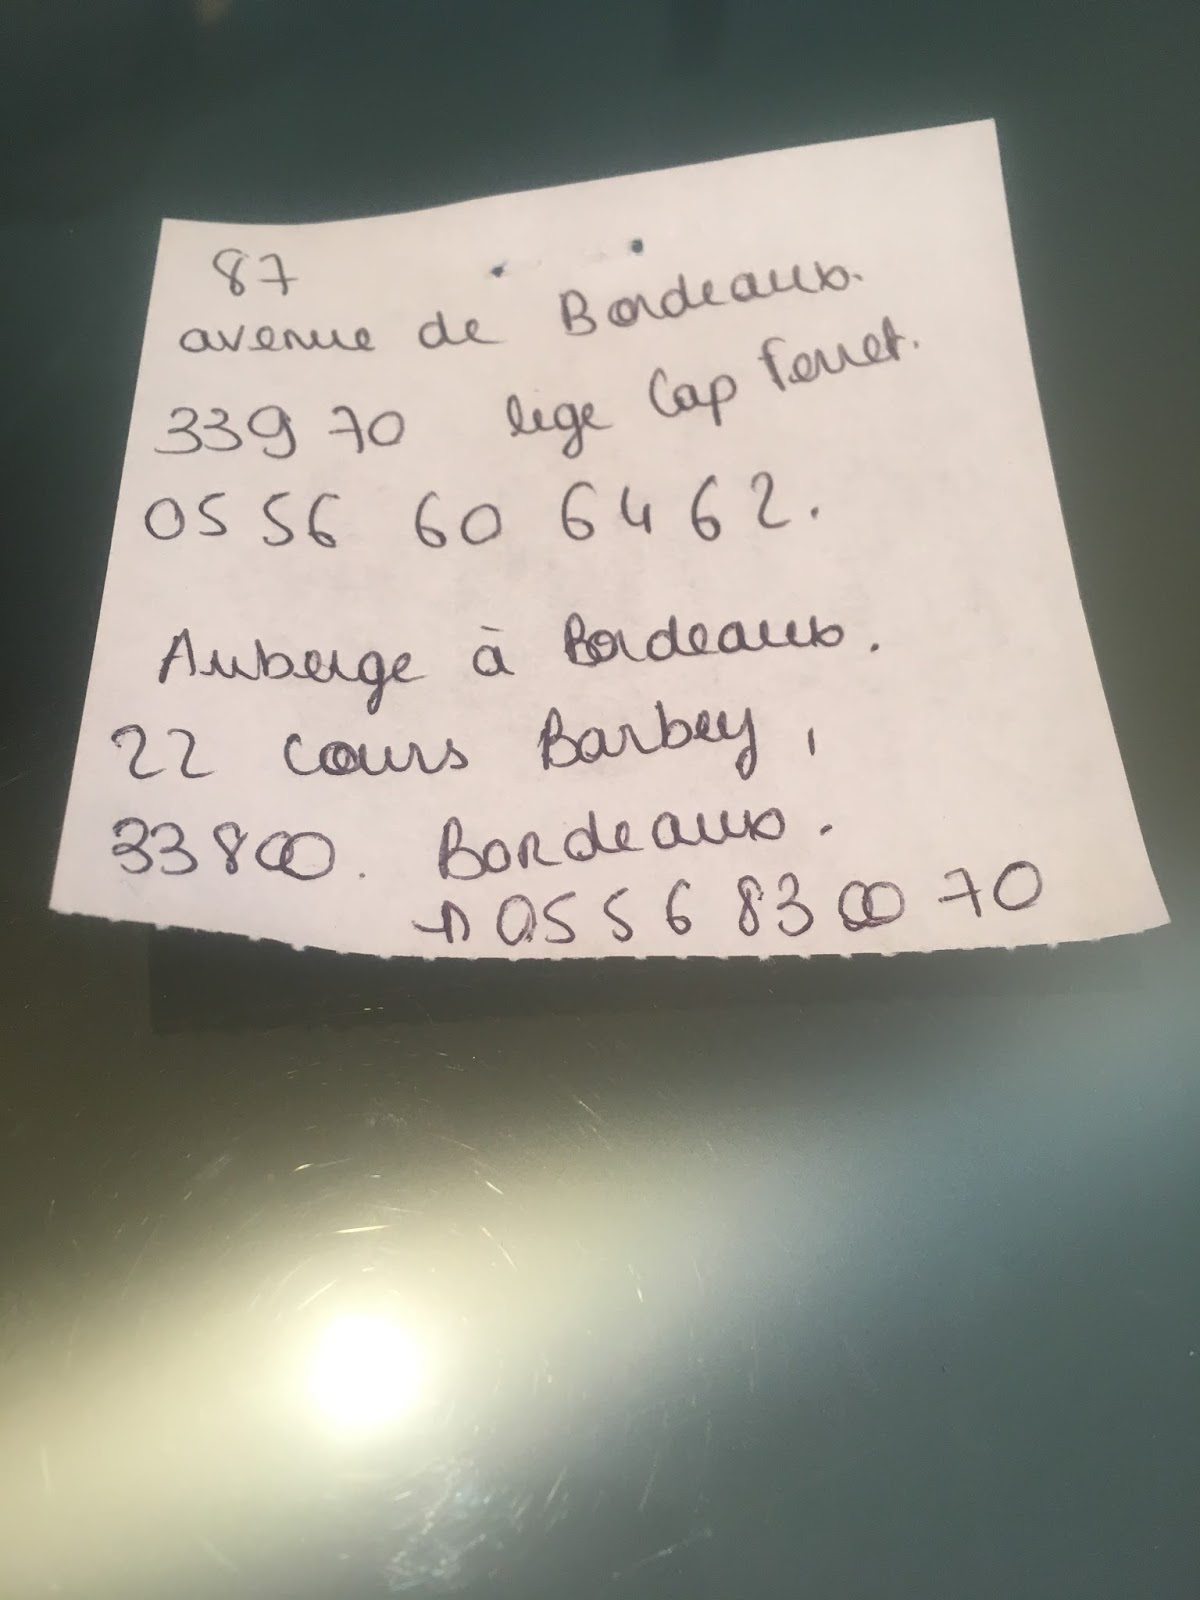 87
avenue de Bordeaux.
33970 lège Cap Ferret.
05 56 60 64 62.
Auberge à Bordeaux.
22 cours Barbey,
33800. Bordeaux.
→ 05 56 83 00 70